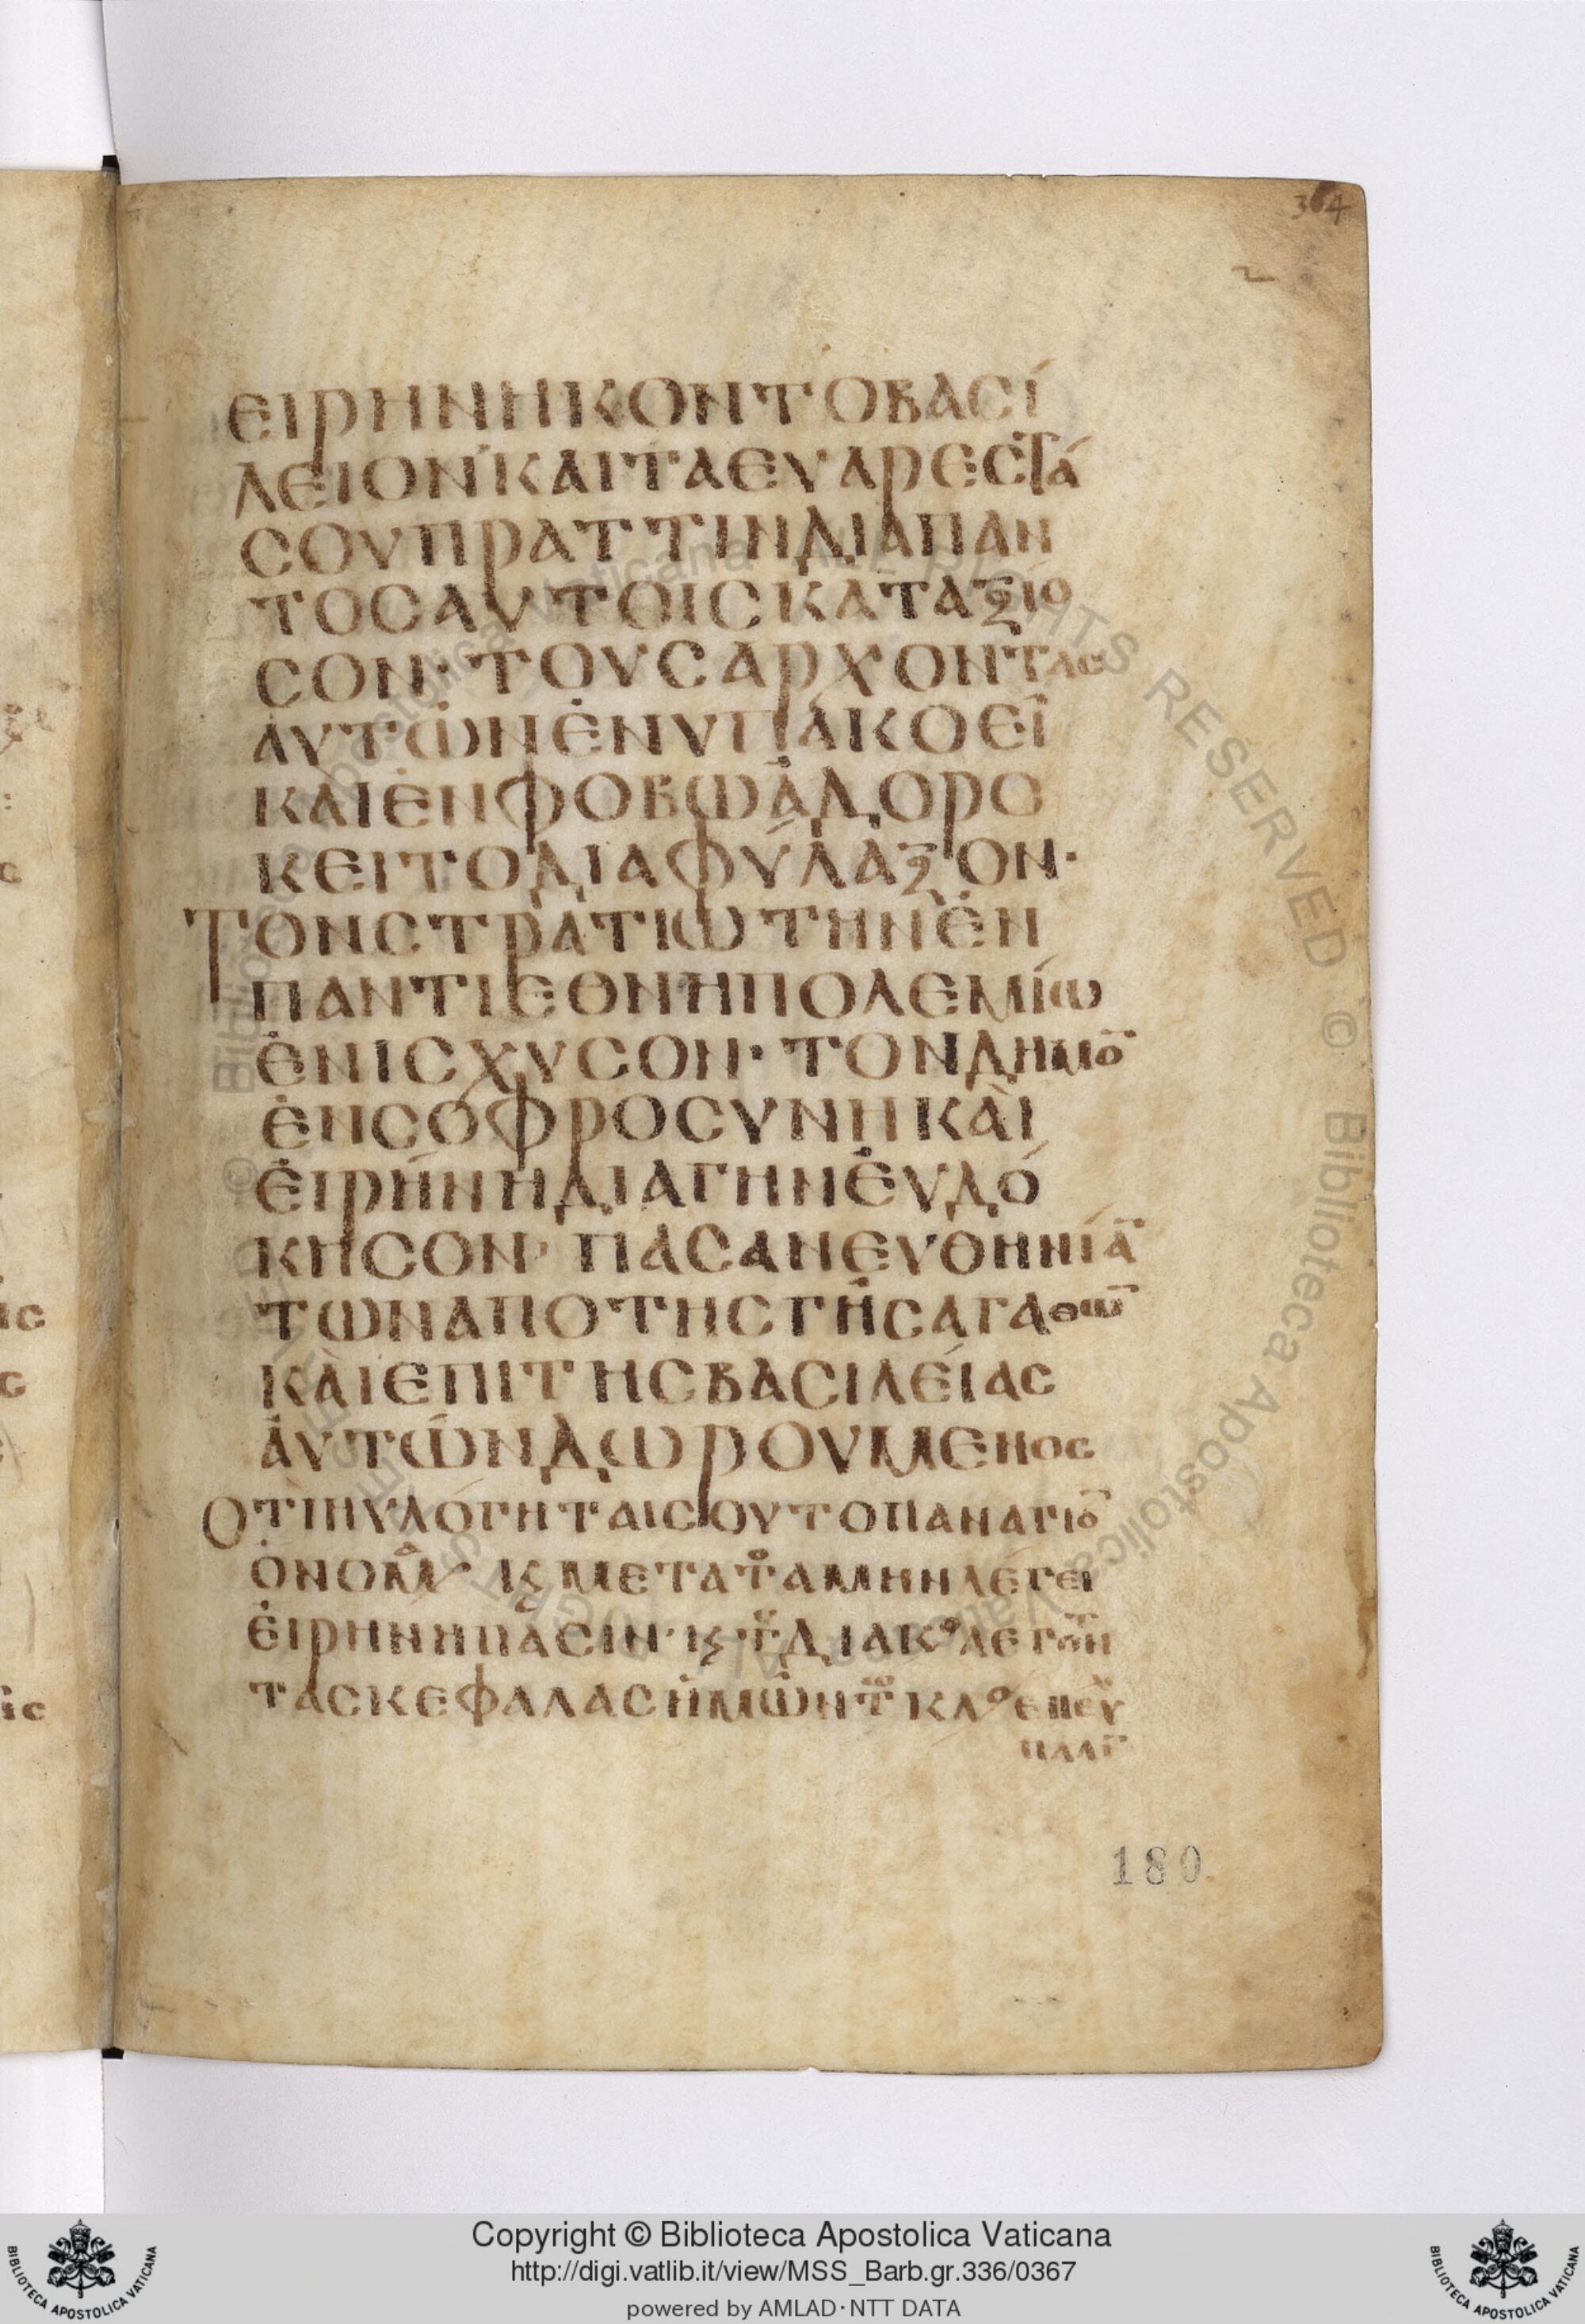 364
2
ΕΙΡΗΝΗΚΟΝΤΟΒΑCΊ
ΛΕΙΟΝ ΚΑΙΤΑΕΥΑΡΕCΤΆ
CΟΥΠΡΑΤΤΙΝΔΙΑΠΑΝ
ΤΟCΑΥΤΟΙCΚΑΤΑΞΙΟ
CΟΝ· ΤΟΥCΑΡΧΟΝΤΑC
ΑΥΤΩΝΕΝΥΠΑΚΟΕΙ
ΚΑΙΕΝΦΟΒΩΑΔΟΡΟ
ΚΕΙΤΟΔΙΑΦΥΛΑΞΟΝ·
ΤΟΝCΤΡΑΤΙΩΤΗΝΕΝ
ΠΑΝΤΙΕΘΝΗΠΟΛΕΜΊΩ
ΕΝΙCΧΥCΟΝ· ΤΟΝΔΗΜΟ̅
ΕΝCΟΦΡΟCΥΝΗΚΑΙ
ΕΙΡΗΝΗΔΙΑΓΗΝΕΥΔΌ
ΚΗCΟΝ· ΠΑCΑΝΕΥΘΗΝΙΑ̅
ΤΩΝΑΠΟΤΗCΓΗCΑΓΑΘΩ̅
ΚΑΙΕΠΙΤΗCΒΑCΙΛΕΊΑC
ΑΥΤΩΝΔΩΡΟΥΜΕΝΟC
ΟΤΙΗΥΛΟΓΗΤΑΙCΟΥΤΟΠΑΝΑΓΙΟ̅
ΟΝΟΜΑ Κϛ ΜΕΤΑΤΟΑΜΗΝΛΕΓΕΙ
ΕΙΡΗΝΗΠΑCΙΝ· Κϛ ΤΟΥΔΙΑΚΟΛΕΓΟΝΤ
ΤΑCΚΕΦΑΛΑCΗΜΩΝΤ ΚΛΟΕΠΕΥ
180
Copyright © Biblioteca Apostolica Vaticana
http://digi.vatlib.it/view/MSS_Barb.gr.336/0367
powered by AMLAD·NTT DATA
BIBLIOTECA APOSTOLICA VATICANA
BIBLIOTECA APOSTOLICA VATICANA